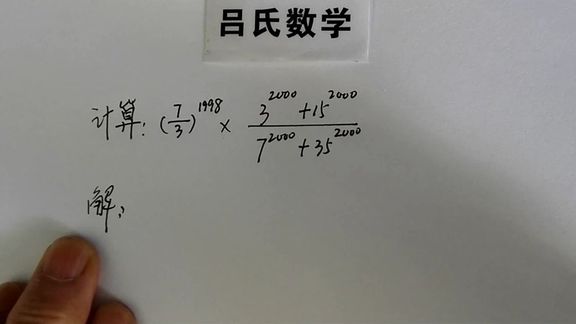 吕氏数学
计算: (7/3)^1998 × (3^2000 + 15^2000)/(7^2000 + 35^2000)
解: